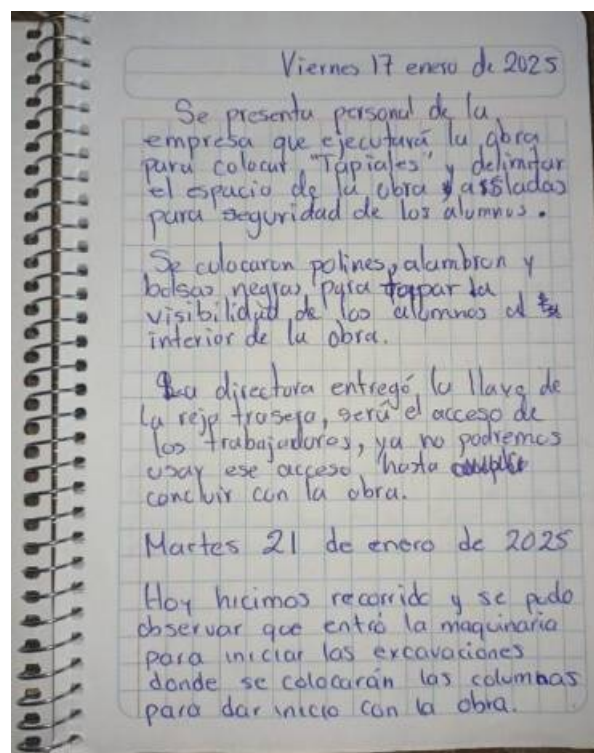 Viernes 17 enero de 2025
Se presenta personal de la
empresa que ejecutará la obra
para colocar "Tapiales" y delimitar
el espacio de la obra y
para seguridad de los alumnos.
Se colocaron polines, alambron y
bolsas negras para tapar la
visibilidad de los alumnos al
interior de la obra.
La directora entregó la llave de
la reja trasera, será el acceso de
los trabajadores, ya no podremos
usar ese acceso hasta
concluir con la obra.
Martes 21 de enero de 2025
Hoy hicimos recorrido y se pudo
observar que entró la maquinaria
para iniciar las excavaciones
donde se colocarán las columnas
para dar inicio con la obra.